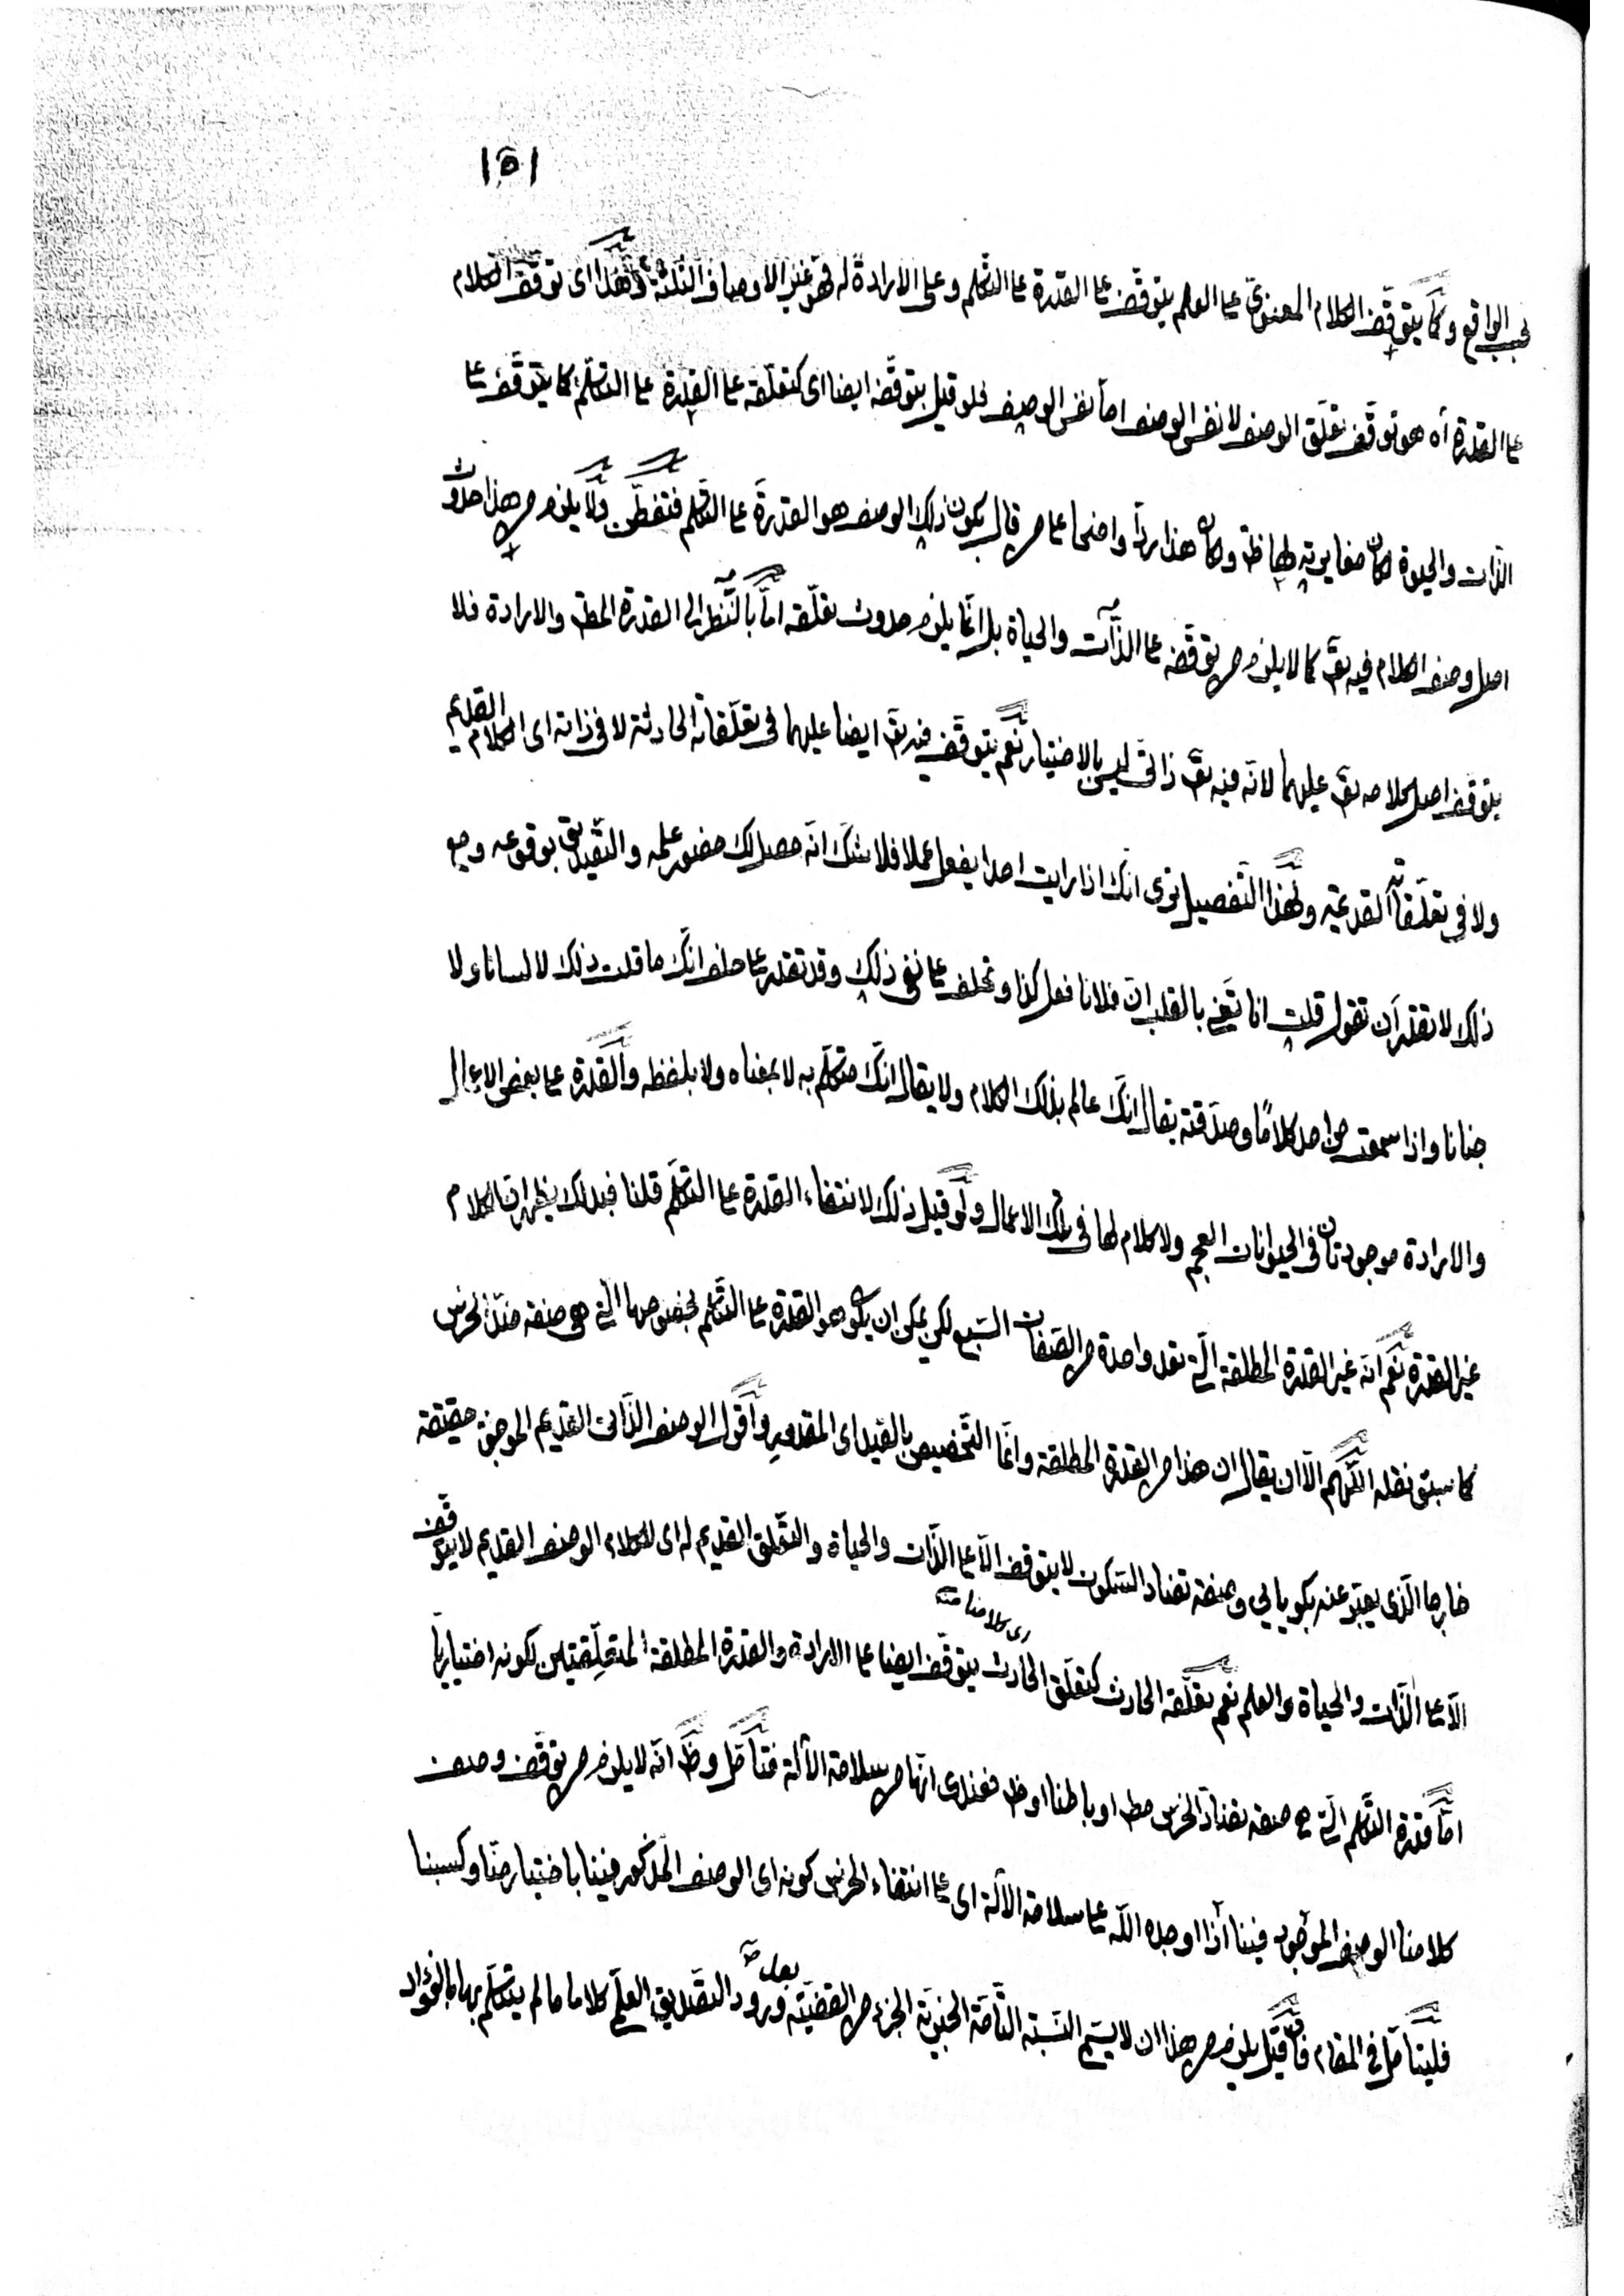 ١٥١
بحسب الواقع وكما يتوقّف الكلام المعنويّ على العلم يتوقّف على القدرة على التكلّم وعلى الارادة له فهو غير الاوصاف الثلثة وهذا اى توقّف الكلام
على القدرة اه هو توقّف تعلّق الوصف لا نفس الوصف امّا نفس الوصف فلو قيل بتوقّفه ايضا اى كتعلّقه على القدرة على التكلّم كما يتوقّف على
الذّات والحيوة لكان مغايرته لها ظ وكان هذا ردّا واضحا على من قال بكون ذلك الوصف هو القدرة على التكلّم فتفطّن ولا يلزم من هذا حدوث
اصل وصف الكلام فيه تع كما لا يلزم من توقّفه على الذّات والحياة بل انّما يلزم حدوث تعلّقه امّا بالنّظر الى القدرة المط والارادة فلا
يتوقف اصل كلامه تع عليهما لانّه فيه تع ذاتى ليس بالاختيار نعم يتوقّف فيه تع ايضا عليهما فى تعلّقاته الحادثة لا فى ذاته اى الكلام القديم
ولا فى تعلّقاته القديمة ولهذا التّفصيل ترى انّك اذا رايت احدا يفعل عملا فلا شكّ انّه حصل لك حضور علمه والتّصديق بوقوعه ومع
ذلك لا تقدر ان تقول قلت انا بالقلب انّ فلانا فعل كذا وتحلف على نفى ذلك وقد تقدر على حلف انّك ما قلت ذلك لا لسانا ولا
جنانا واذا سمعت من احد كلامًا وصدّقته يقال انّك عالم بذلك الكلام ولا يقال انّك متكلّم به لا بمعناه ولا بلفظه والقدرة على بعض الاعمال
والارادة موجودتان فى الحيوانات العجم ولا كلام لها فى تلك الاعمال ولو قيل ذلك لانتفاء القدرة على التكلّم قلنا فبذلك يظهر انّ الكلام
غير القدرة نعم انّه غير القدرة المطلقة الّتى تعد واحدة من الصّفات السّبع لكن يمكن ان يكون هو القدرة على التّكلّم بخصوصها الّتى هى صفة ضدّ الخرس
كما سبق نقله اللّهم الّا ان يقال ان هذا من القدرة المطلقة وانّما التّخصيص بالقيد اى المقدور واقول الوصف الذّاتى القديم الموجود حقيقة
خارجا الّذى يعبّر عنه بكويايى وصفة تضاد السّكوت لا يتوقف الّا على الذّات والحياة والتّعلّق القديم له اى لكلام الوصف القديم لا يتوقّف
الّا على الذّات والحياة والعلم نعم تعلّقه الحادث كتعلّق الحادث اى كلامنا منه يتوقّف ايضا على الارادة والقدرة المطلقة المتعلّقتين لكونه اختياريّا
امّا قدرة التّكلّم الّتى هى صفة تضادّ الخرس مط او باطنا او ظ فعندى انّها من سلامة الآلة فتأمّل وظ انّه لا يلزم من توقّف وصف
كلامنا الوصف الموجود فينا اذا اوجده اللّه على سلامة الآلة اى على انتفاء الخرس كونه اى الوصف المذكور فينا باختيار منّا وكسبنا
فليتأمّل فى المقام فان قيل يلزم من هذا ان لا يسمّى النّسبة التّامّة الخبريّة الجزء من القضيّة بعد ورود التصديق العلمى كلاما ما لم يتكلّم بها بالفؤاد